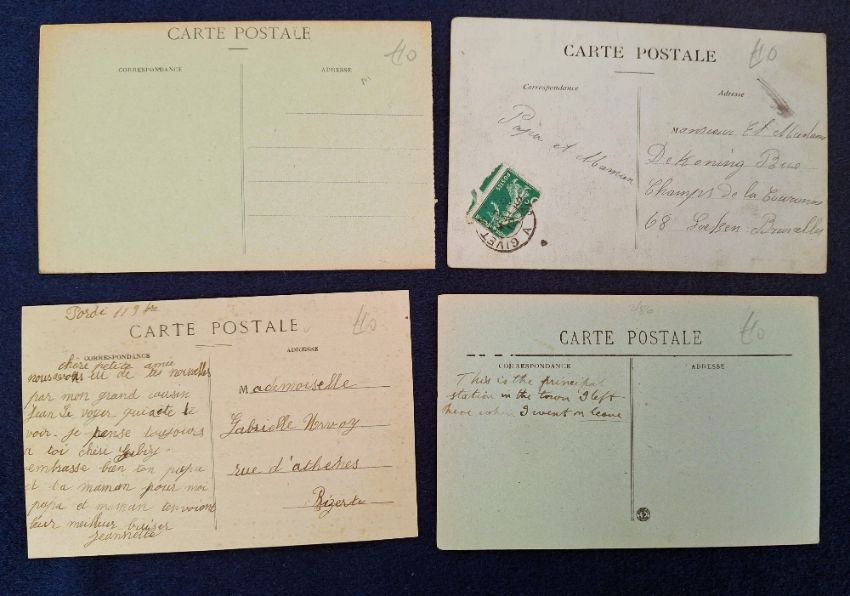 CARTE POSTALE
CORRESPONDANCE
ADRESSE
CARTE POSTALE
Correspondance
Adresse
Papa et Maman
Monsieur Et Madame
DeKoning Rue
Champs de la Couronne
68 Laeken Bruxelles
POSTES
GIVET
Bordj 11 9bre
CARTE POSTALE
CORRESPONDANCE
ADRESSE
chère petite amie
nous avons eu de tes nouvelles
par mon grand cousin
Jean Le voyer qui a été te
voir. je pense toujours
a toi chère
embrasse bien ton papa
et ta maman pour moi
papa et maman t'envoient
leur meilleur baiser
Jeannette
Mademoiselle
Gabrielle
rue d'athènes
Bizerte
CARTE POSTALE
CORRESPONDANCE
ADRESSE
This is the principal
station in the town I left
here when I went on leave